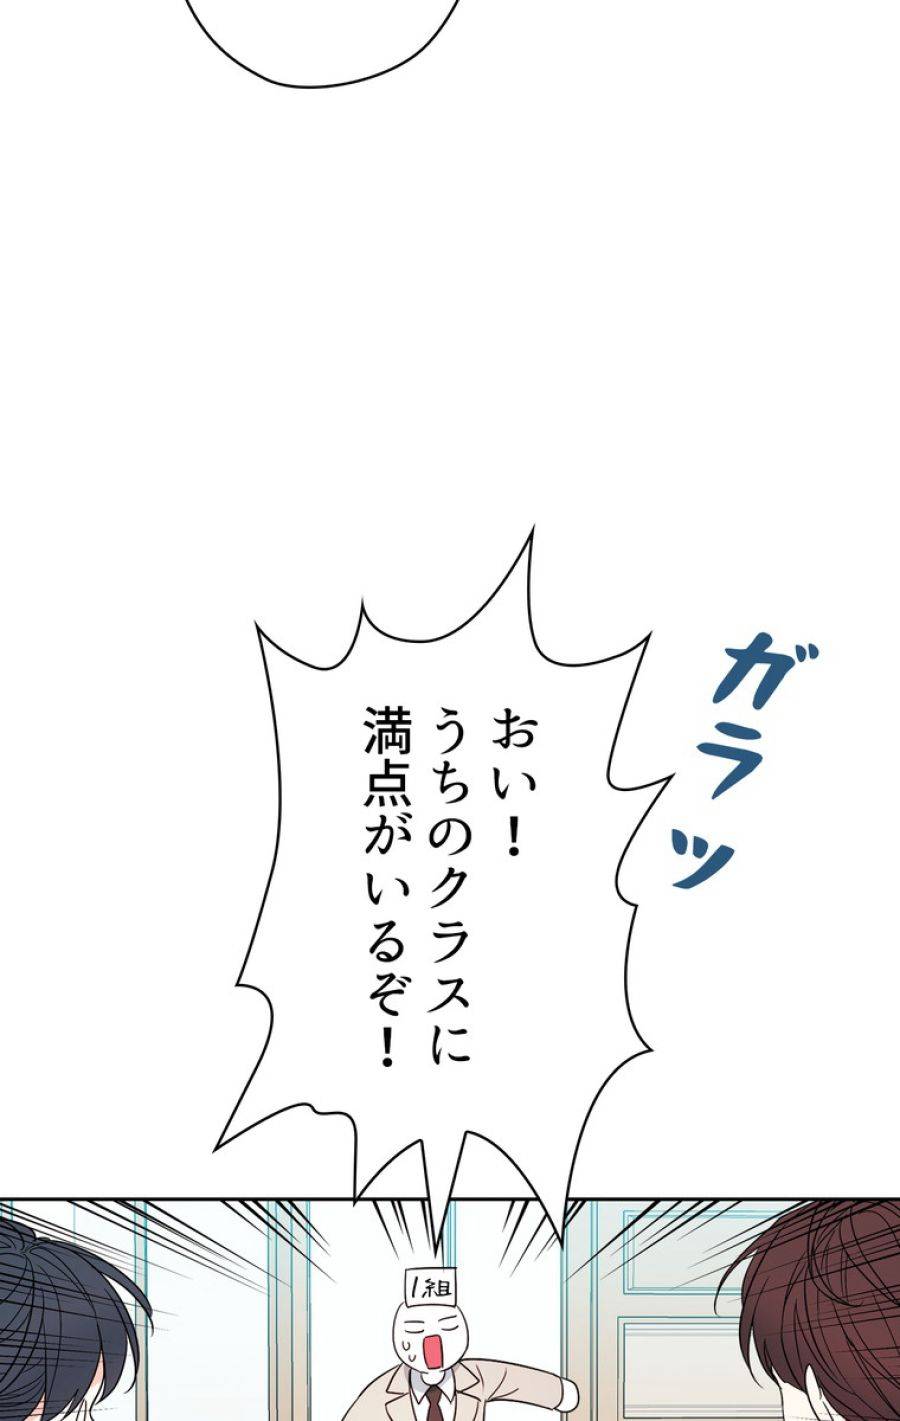 ガラッ
おい！
うちのクラスに
満点がいるぞ！
1組